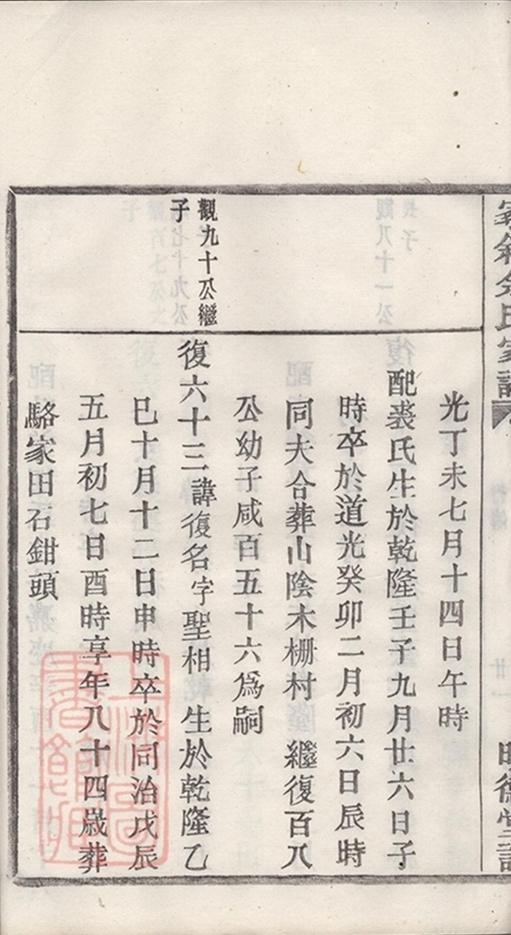 光丁未七月十四日午時
配裘氏生於乾隆壬子九月廿六日子
時卒於道光癸卯二月初六日辰時
同夫合葬山陰木栅村 繼復百八
公幼子咸百五十六為嗣
觀九十公繼
子
復六十三諱復名字聖相 生於乾隆乙
巳十月十二日申時卒於同治戊辰
五月初七日酉時享年八十四歲葬
駱家田石鉗頭